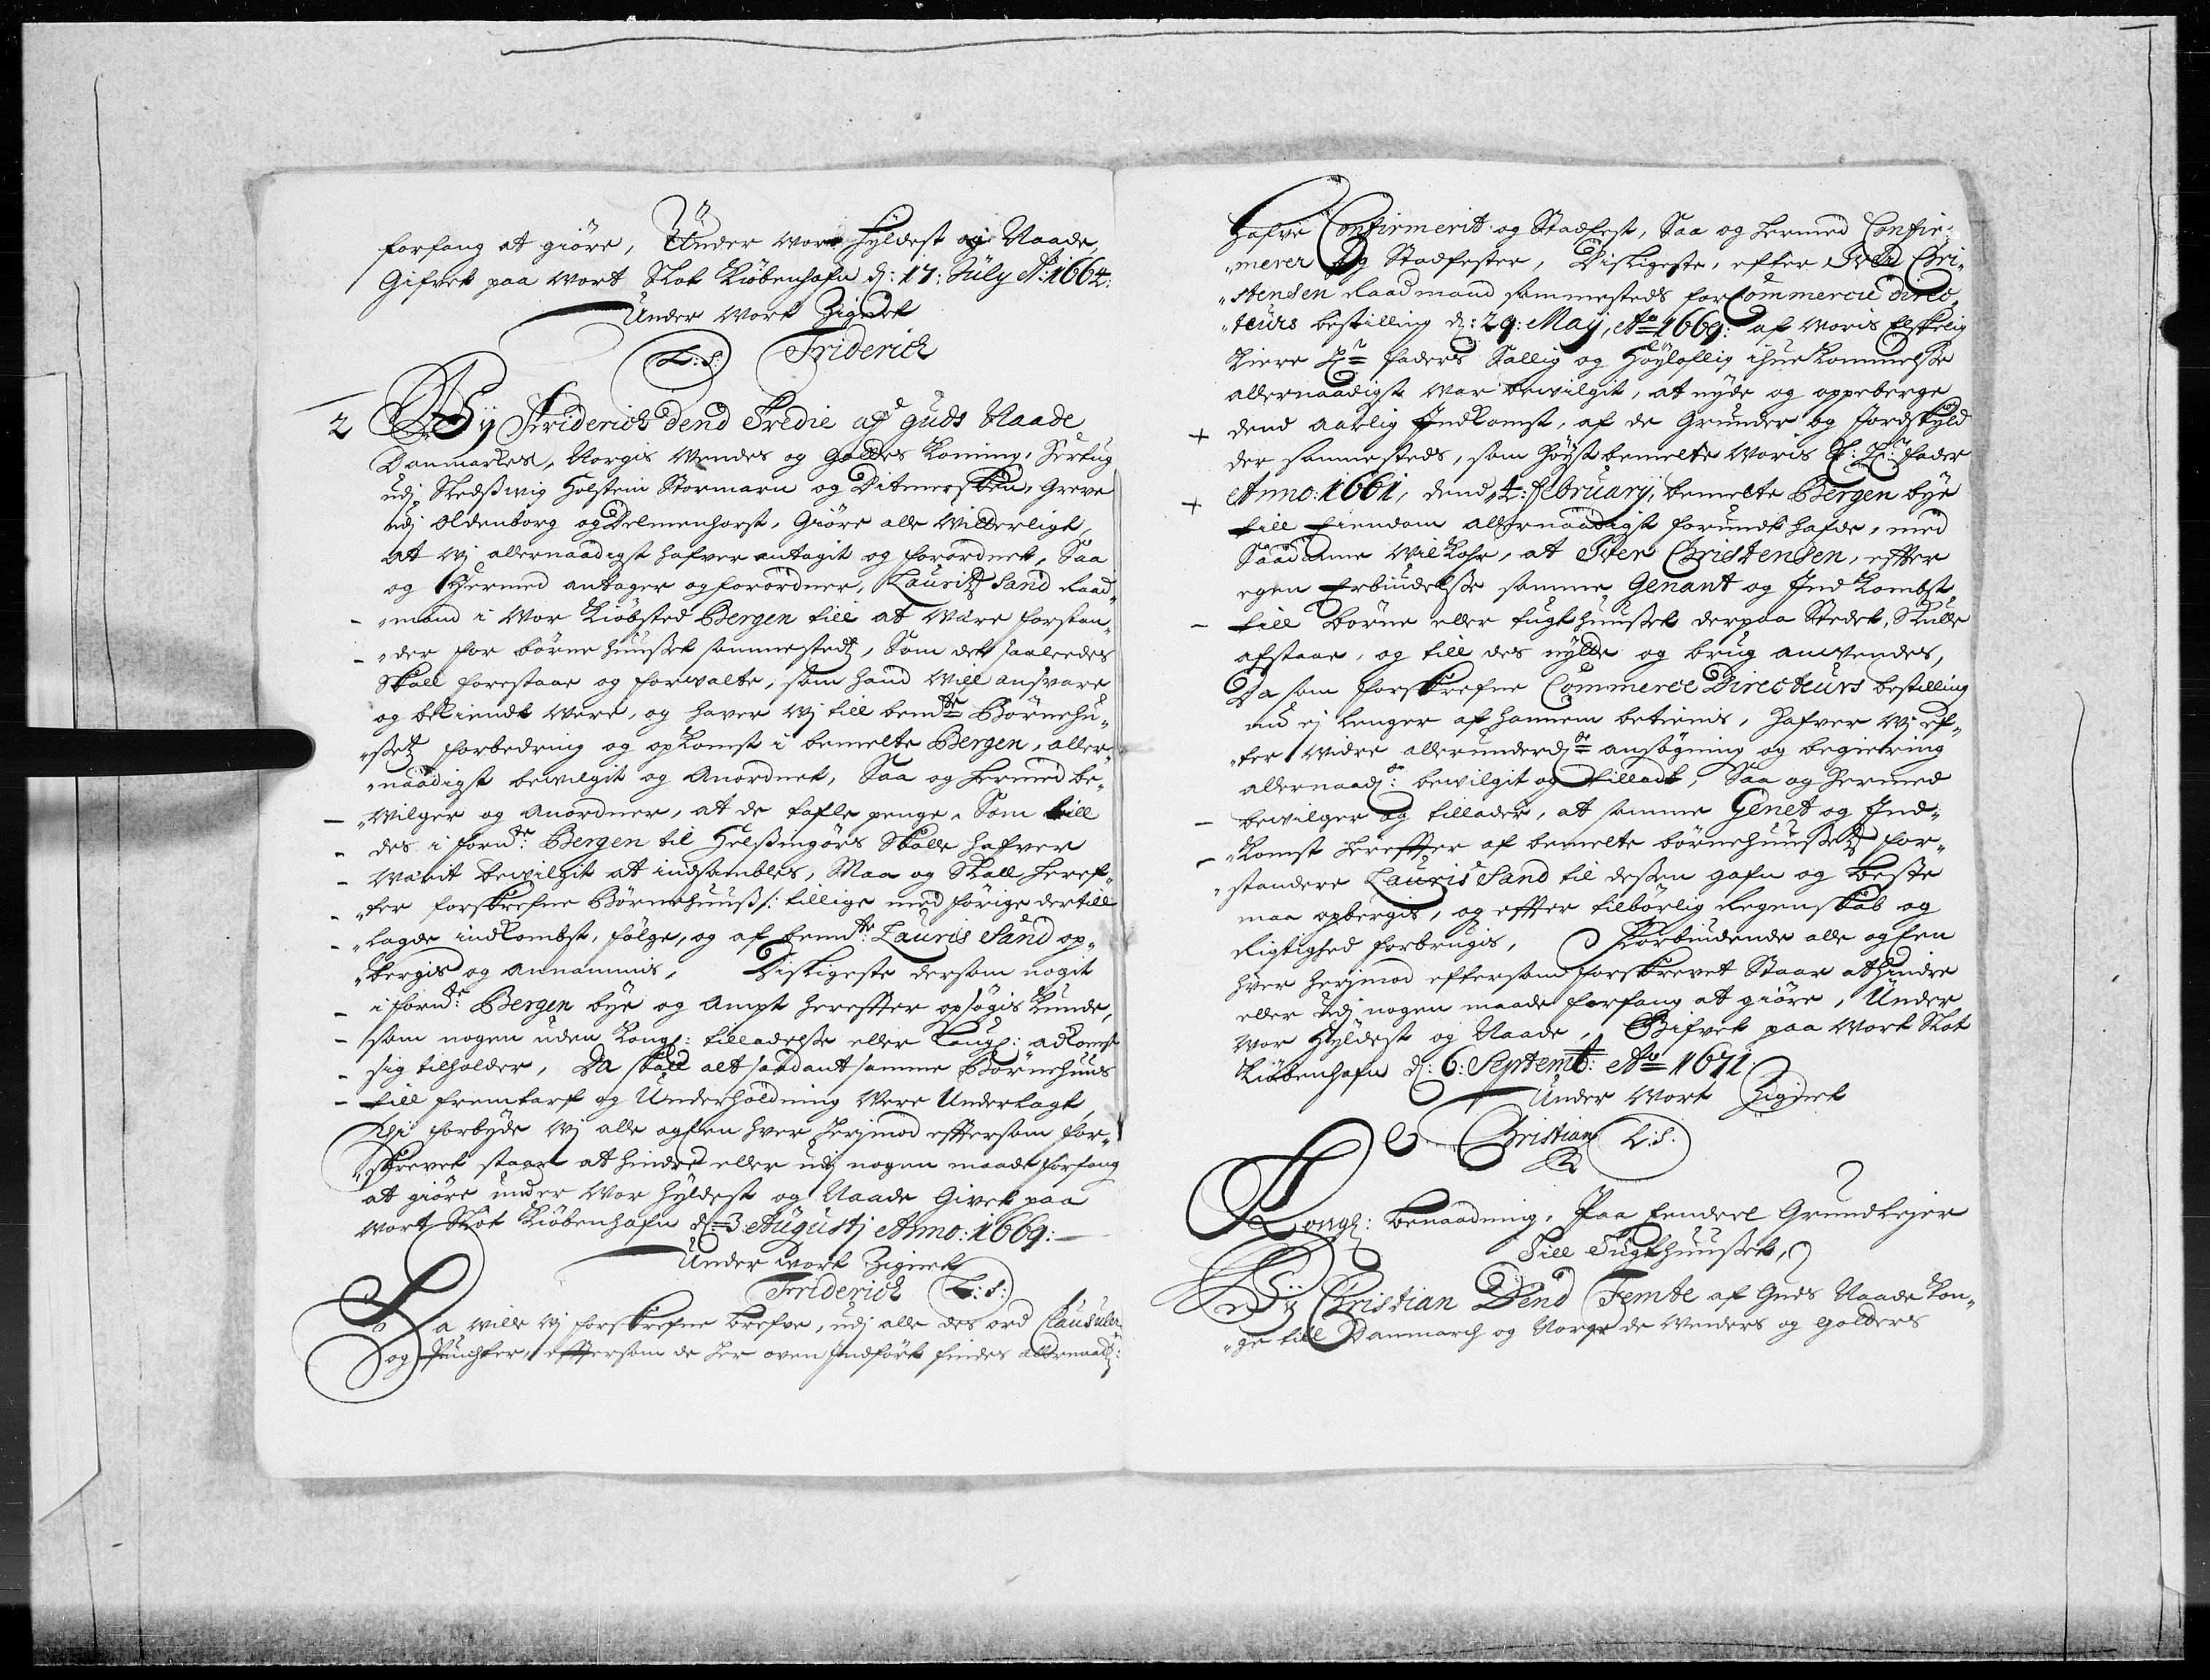 forfang at giöre, Under Vor Hyldest og Naade,
Gifvet paa Vort Slot Kiøbenhafn d: 17: July A: 1664:
Under Vort Zignet
L:S: Friderich
2 Wy Friderich dend Tredie af Guds Naade
Danmarkes, Norgis Wendes og Gottes Koning, Hertug
udj Sleßwig Holstein Stormarn og Ditmersken, Greve
udj Oldenborg og Delmenhorst, Giöre alle Vitterligt,
at Vj allernaadigst hafver antagit og forordnet, Saa
og Hermed antager og forordner, Lauritz Sand Raad„
„mand i Vor Kiöbsted Bergen till at Være forstan„
„der for börnehuußet sammestedtz, Som det saaleedes
Skall forestaae og forvalte, som hand Vill ansvare
og bekiendt Være, og haver Vj till bemte Börnehu„
„ßetz forbedring og opkomst i bemelte Bergen, aller„
„naadigst bevilgit og Anordnet, Saa og hermed be„
„Vilger og Anordner, at de tafle penge, Som till
des i fornte: Bergen til Helßingørs Skolle hafver
Värit bevilgit at indsambles, Maa og Skall heref„
„ter forskrefne Börnehuuß /: tillige med forige dertill
„lagde indkombst, fölge, og af bemte: Lauris Sand op„
„bergis og annammis, Disligeste dersom nogit
i fornte: Bergen bye og Ampt hereffter opsögis kunde,
som nogen uden Kongl: tilladelse eller Kongl: adkomst
sig tilholder, Da skall alt saadant samme Börnehuus
till fremtarf og Underholdning Vere Underlagt,
Thi forbyde Vj alle og Een hver herjmod eftersom for„
„skrevet staar at hindre eller udj nogen maade forfang
at giöre under Vor Hyldest og Naade Givet paa
Vort Slot Kiöbenhafn d: 3 Augustj Anno: 1669:
Under Vort Zignet
Friderich L:S:
Da Ville Vj forskrefne brefve, udj alle des ord Clausuler
og Puncter, eftersom de her oven Indfört findes allernaadt:
Hafve Confirmerit og Stadfest, Saa og hermed Confir„
„merer og Stadfester, Disligeste, efter Iver Chri„
„stensen Raadmand sammesteds for Commercie Direc„
„teürs bestilling d: 29: Maij, Ao 1669: af Voris Elskelig
Kiere Hr. Faders Sallig og Höyloflig ihuekommelse
allernaadigst Var bevilgit, at nyde og oppeberge
dend aarlig Indkomst, af de Grunder og Jordskyld
der sammesteds, som höystbemelte Voris K: Hr: Fader
Anno: 1661, dend 4: february, bemelte Bergen bye
till Eiendom allernaadigst forundt hafde, med
Saadanne Vilkohr, at Iver Christensen, effter
egen Erbiudelse samme Genant og Indkombst
till Börne eller tugthuußet derpaa Stedet, Skulle
afstaae, og till des nytte og brug anvendes,
Da som forskrefne Commerce Directeurs bestilling
nu ej lenger af hannem betienis, hafver Vj ef„
„ter Vidre allerunderdte ansögning og begiering
allernaadt: bevilgit og tilladt, Saa og hermed
bevilger og tillader, at samme Genet og Ind„
„komst hereffter af bemelte börnehuußetz for„
„standere Lauris Sand til dessen gafn og beste
maa opbergis, og effter tilbörlig Regenskab og
Rigtighed forbrugis, Forbiudende alle og Een
hver herjmod eftersom forskrevet Staar at Hindre
eller udj nogen maade forfang at giöre, Under
Vor Hyldest og Naade, Gifvet paa Vort Slot
Kiöbenhafn d: 6: Septemb: Ao 1671
Under Vort Zignet
Christian L:S:
Kongl: Benaadning, Paa Grundlejer
Till Tugthuußet,
Wy Christian Dend Femte af Guds Naade Kon„
„ge till Danmarch og Norge de Wenders og Gotters